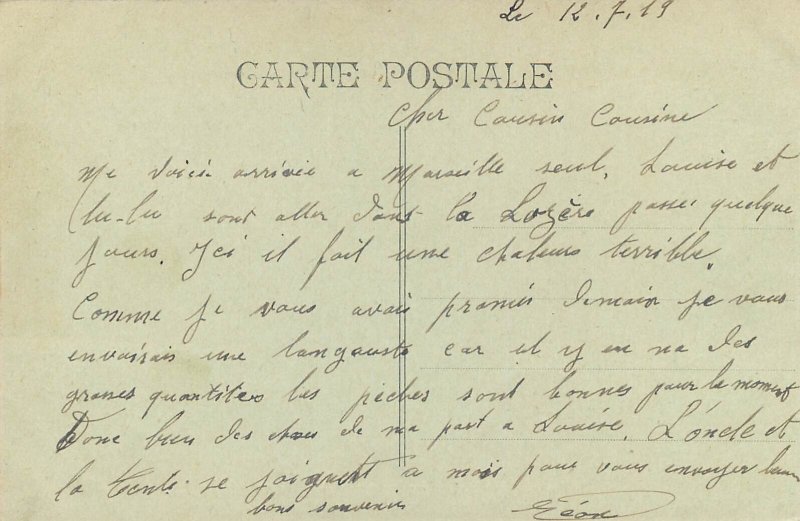 Le 12.7.19
CARTE POSTALE
Cher Cousin Cousine
Me voici arrivée a Marseille seul, Louise et
Lu-lu sont aller dans la Lozère passé quelque
jours. Ici il fait une chaleurs terrible.
Comme je vous avais promis demain je vous
envoirais une langouste car il y en na des
granes quantités les pêches sont bonnes pour le moment
Donc bien des choses de ma part a Louise. L'oncle et
la tente se joignent a mois pour vous envoyer leurs
bons souvenirs Léon